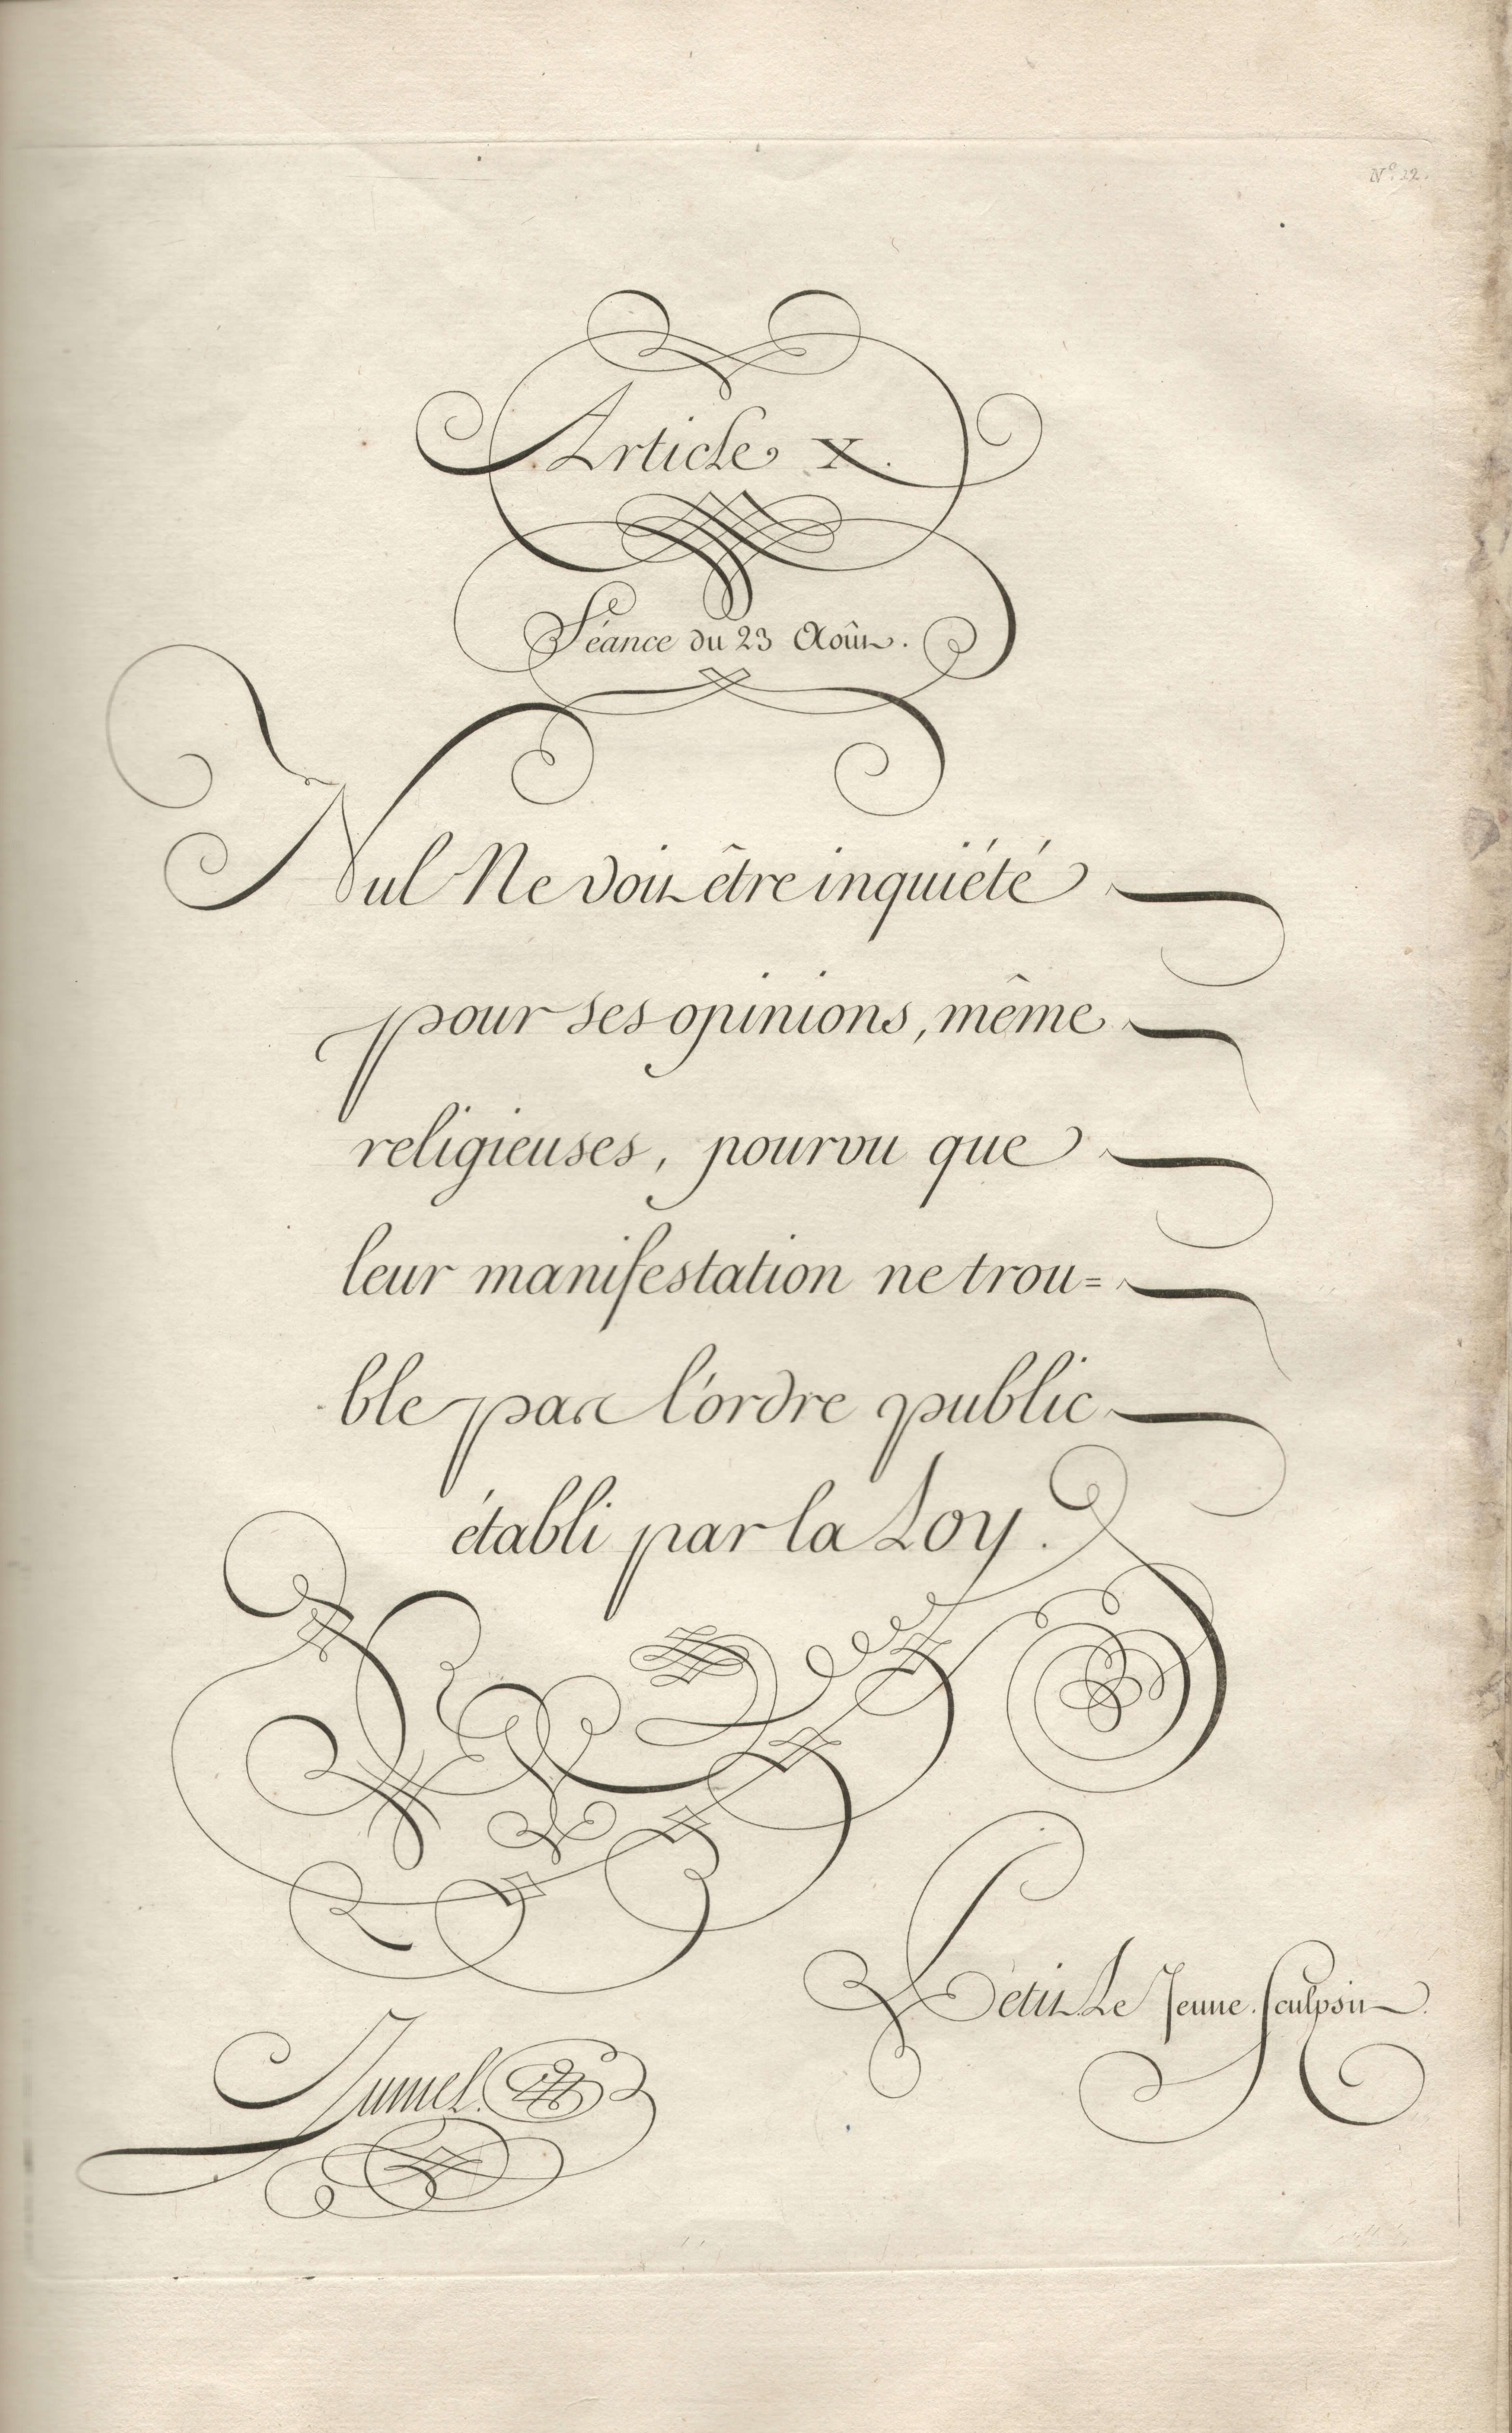 N.º 22.
Article X.
Séance du 23 Août.
Nul Ne doit être inquiété
pour ses opinions, même
religieuses, pourvu que
leur manifestation ne trou=
ble pas l'ordre public
établi par la Loy.
Petit Le Jeune Sculpsit.
Jumel.